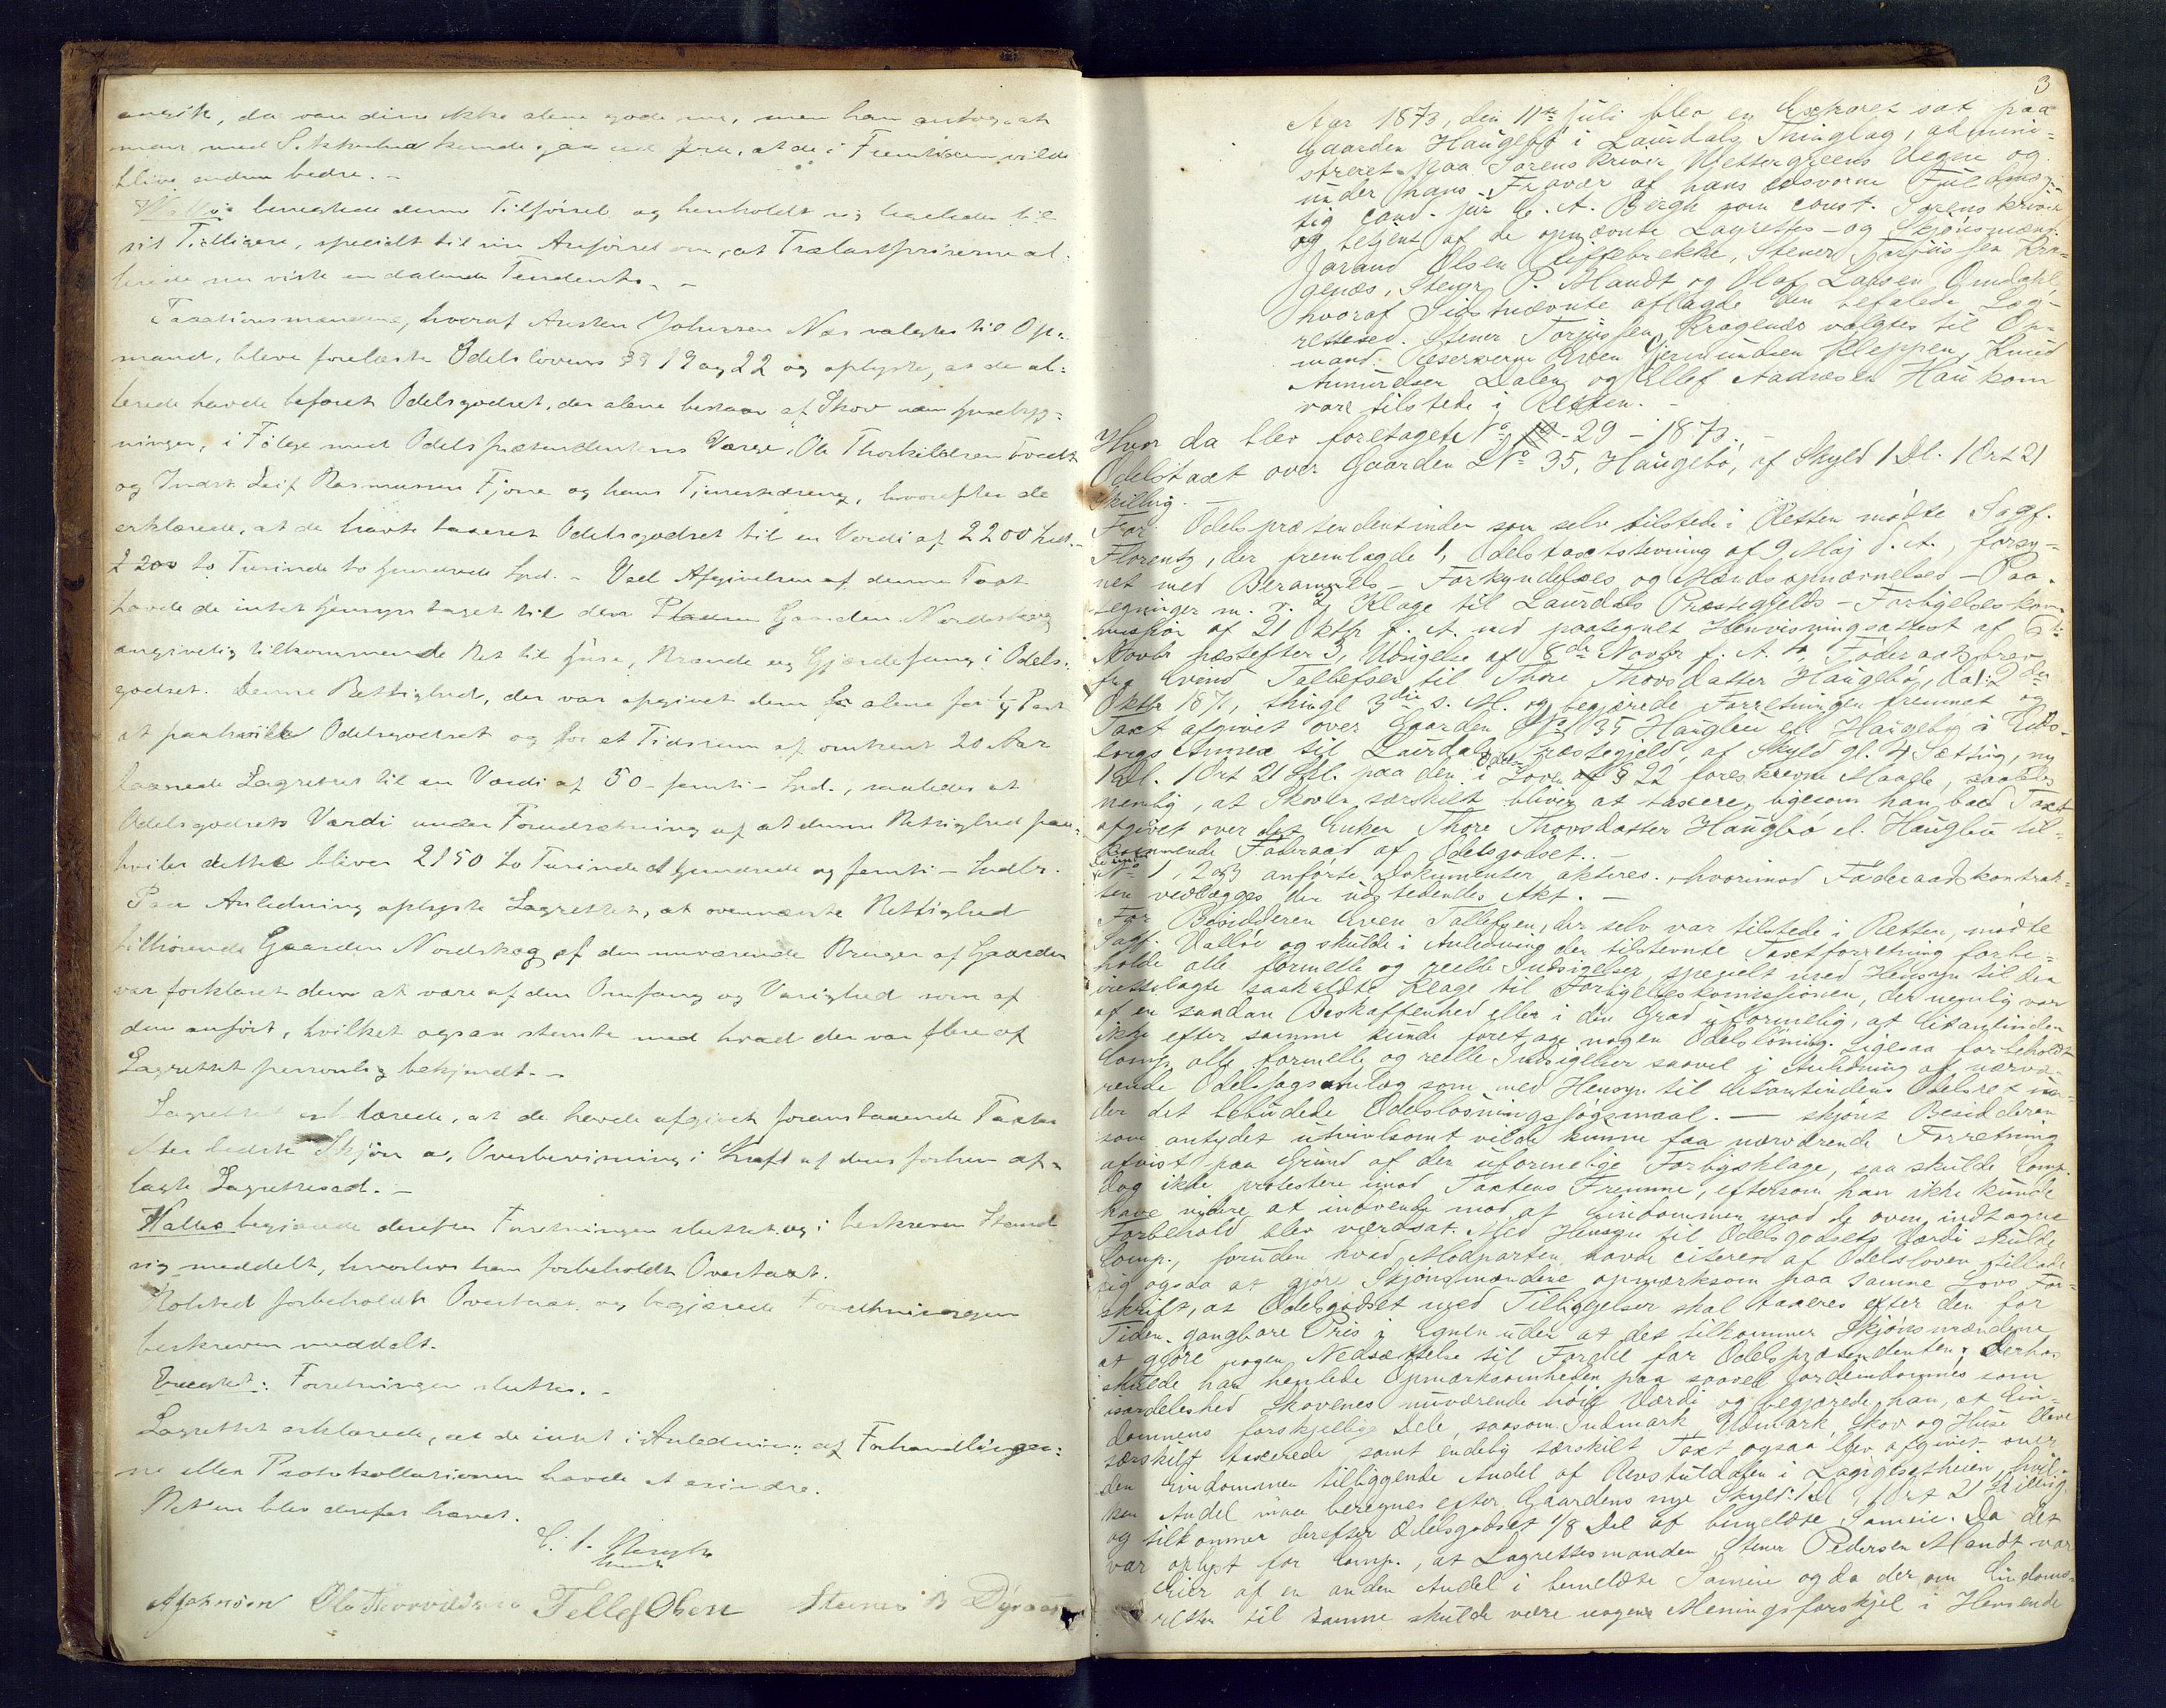 da vare disse ikke alene gode nu, men han antog, at
man med Sikkerhed kunde gaa ud fra, at de i Fremtiden vilde
blive endnu bedre. -
Walløe benegtede denne Tilførsel og henholdt sig ligeledes til
sit Tidligere, specielt til sin Anførsel om, at Trælastpriserne al-
lerede nu viste en dalende Tendents. -
Taxationsmændene, hvoraf Austen Johnsen Næs valgtes til Op-
mand, bleve forelæste Odelslovens §§ 19 og 22 og oplyste, at de al-
lerede havde befaret Odelsgodset, der alene bestaar af Skov uden Husebyg-
ninger, i Følge med Odelsprætendentens Værge, Ole Thorkildsen Tveidt
og Indst. Leif Rasmusen Fjone og hans hvorefter de
erklærede, at de havde taxeret Odelsgodset til en Værdi af 2200 Spd. -
2200 to Tusinde to Hundrede Spd. - Ved Afgivelsen af denne Taxt
havde de intet Hensyn taget til den Gaarden Nordskog
angivelig tilkommende Ret til Huse, Brænde og Gjærdefang i Odels-
godset. Denne Rettighed, der var opgivet dem alene for Part
at paahvile Odelsgodset og for et Tidsrum af omtrent 20 Aar
taxerede Lagrettet til en Værdi af 50 - femti - Spd., saaledes at
Odelsgodsets Værdi under Forudsætning af at denne Rettighed paa-
hviler dette bliver 2150 to Tusinde et Hundrede og femti - Spdlr.
Paa Anledning oplyste Lagrettet, at ovennævnte Rettighed
tilhørende Gaarden Nordskog af den nuværende Bruger af Gaarden
var forklaret dem at være af den Omfang og Varighed som af
dem anført, hvilket ogsaa stemte med hvad der var flere af
Lagrettet personlig bekjendt. -
Lagrettet erklærede, at de havde afgivet foranstaaende Taxter
efter bedste Skjøn og Overbevisning i Kraft af deres forhen af-
lagte Lagrettesed. -
Walløe begjærede derefter Forretningen sluttet og i beskreven Stand
sig meddelt, hvorhos han forbeholdt Overtaxt.
Rolsted forbeholdt Overtaxt og begjærede Forretningen
beskreven meddelt.
Eragtet: Forretningen sluttes. -
Lagrettet erklærede, at de intet i Anledning af Forhandlinger-
ne eller Protokollationen havde at erindre.
Retten blev derefter hævet.
C. A. Bergh
const.
A Johnsen Ole Thorkildsen Tellef Olsen Steener B Dyraas
3
Aar 1873, den 11te Juli blev en Extraret sat paa
Gaarden Haugebø i Laurdals Thinglag, admini-
streret paa Sorenskriver Wettergreens Vegne og
under hans Fravær af hans edsvorne Fuldmæg-
tig cand. jur C. A. Bergh som const. Sorenskriver
og betjent af de opnævnte Lagrettes- og Skjønsmænd:
Jorand Olsen Steener Torjussen Kra-
genæs, Stener P. Mandt og Olaf Larsen Omdahl,
hvoraf Sidstnævnte aflagde den befalede Lag-
rettesed. Stener Torjussen Kragenæs valgtes til Op-
mand. Reserverne Broen Vermundsen Kleppen, Knud
Anundsen Dalen og Ellef Aadnesen Haukom
vare tilstede i Retten. -
Hvor da blev foretaget No 29 - 1873. -
Odelstaxt over Gaarden LNo 35, Haugebø, af Skyld 1 Dl. 1 Ort 21
Skilling. -
For Odelsprætendentinden som selv tilstede i Retten mødte Sagf.
Florentz, der fremlagde 1, Odelstaxtstevning af 9 Maj d. A., forsy-
net med Berammelses- Forkyndelses og Mænds opnævnelses - Paa-
tegninger m. v. 2, Klage til Laurdals Præstegjelds - Forligelseskom-
mission af 21 Oktbr f. A. med paategnet Henvisningsattest af 6te
Novbr næstefter 3, Udsigelse af 8de Novbr f. A. 4, Føderaadsbrev
fra Evend Tallefsen til Thore Thorsdatter Haugebø, dat. 2den
Oktbr 1871, thingl 3die s. M. og begjærede Forretningen fremmet og
Taxt afgivet over Gaarden LNo 35 Haugleu el Haugebø i Eids-
borgs Annex til Laurdals Præstegjeld, af Skyld gl. 4 Sætting, ny
1 Dl. 1 Ort 21 Skl. paa den i Odelsloven af § 22 foreskrevne Maade, saaledes
nemlig, at Skoven særskilt bliver at taxere, ligesom han bad Taxt
afgivet over det Enken Thore Thorsdatter Haugbø el. Haugleu til-
kommende Føderaad af Odelsgodset. -
De under No 1, 2 og 3 anførte Dokumenter akteres, hvorimod Føderaadskontrak-
ten vedlægges den udstedendes Akt. -
For Besidderen Even Tallefsen, der selv var tilstede i Retten, mødte
Sagf. Walløe og skulde i Anledning den tilstevnte Taxtforretning forbe-
holde alle formelle og reelle Indsigelser, specielt med Hensyn til den
irettelagte saakaldte Klage til Forligelseskomissionen, der nemlig var
af en saadan Beskaffenhed eller i den Grad uformelig, at Citantinden
ikke efter samme kunde foretage nogen Odelsløsning. Ligesaa forbeholdt
Comp. alle formelle og reelle Indsigelser saavel i Anledning af nærvæ-
rende Odelssagsanlæg som med Hensyn til Citantindens Odelsret un-
der det bebudede Odelsløsningssøgsmaal. - skjønt Besidderen
som antydet utvivlsomt vilde kunne faa nærværende Forretning
afvist paa Grund af den uformelige Forligsklage, saa skulde Comp.
dog ikke protestere imod Taxtens Fremme, eftersom han ikke kunde
have videre at indvende mod at Eiendommen mod de oven indtagne
Forbehold blev værdsat. Med Hensyn til Odelsgodsets Værdi skulde
Comp., foruden hvad Modparten havde citeret af Odelsloven, tillade
sig ogsaa at gjøre Skjønsmændene opmærksom paa samme Lovs For-
skrift, at Odelsgodset med Tilliggelser skal taxeres efter den for
Tiden gangbare Pris i Egnen uden at det tilkommer Skjønsmændene
at gjøre nogen Nedsættelse til Fordel for Odelsprætendenten; derhos
skulde han henlede Opmærksomheden paa saavel Jordeindommes som
isærdeleshed Skovenes nuværende høie Værdi og begjærede han, at Ein-
dommens forskjellige Dele, saasom Indmark, Udmark, Skov og Huse bleve
særskilt taxerede samt endelig særskilt Taxt ogsaa blev afgivet over
den Eindommen tilliggende Andel af i hvil-
ken Andel maa beregnes efter Gaardens nye Skyld: 1 Dl 1 Ort 21 Skilling
og tilkommer derefter Odelsgodset 1/8 Del af bemeldte Sameie. Da det
var oplyst for Comp., at Lagrettesmanden Stener Pedersen Mandt var
Eier af en anden Andel i bemeldte Sameie og da der om Eindoms-
retten til samme skulde være nogen Meningsforskjel i Henseende